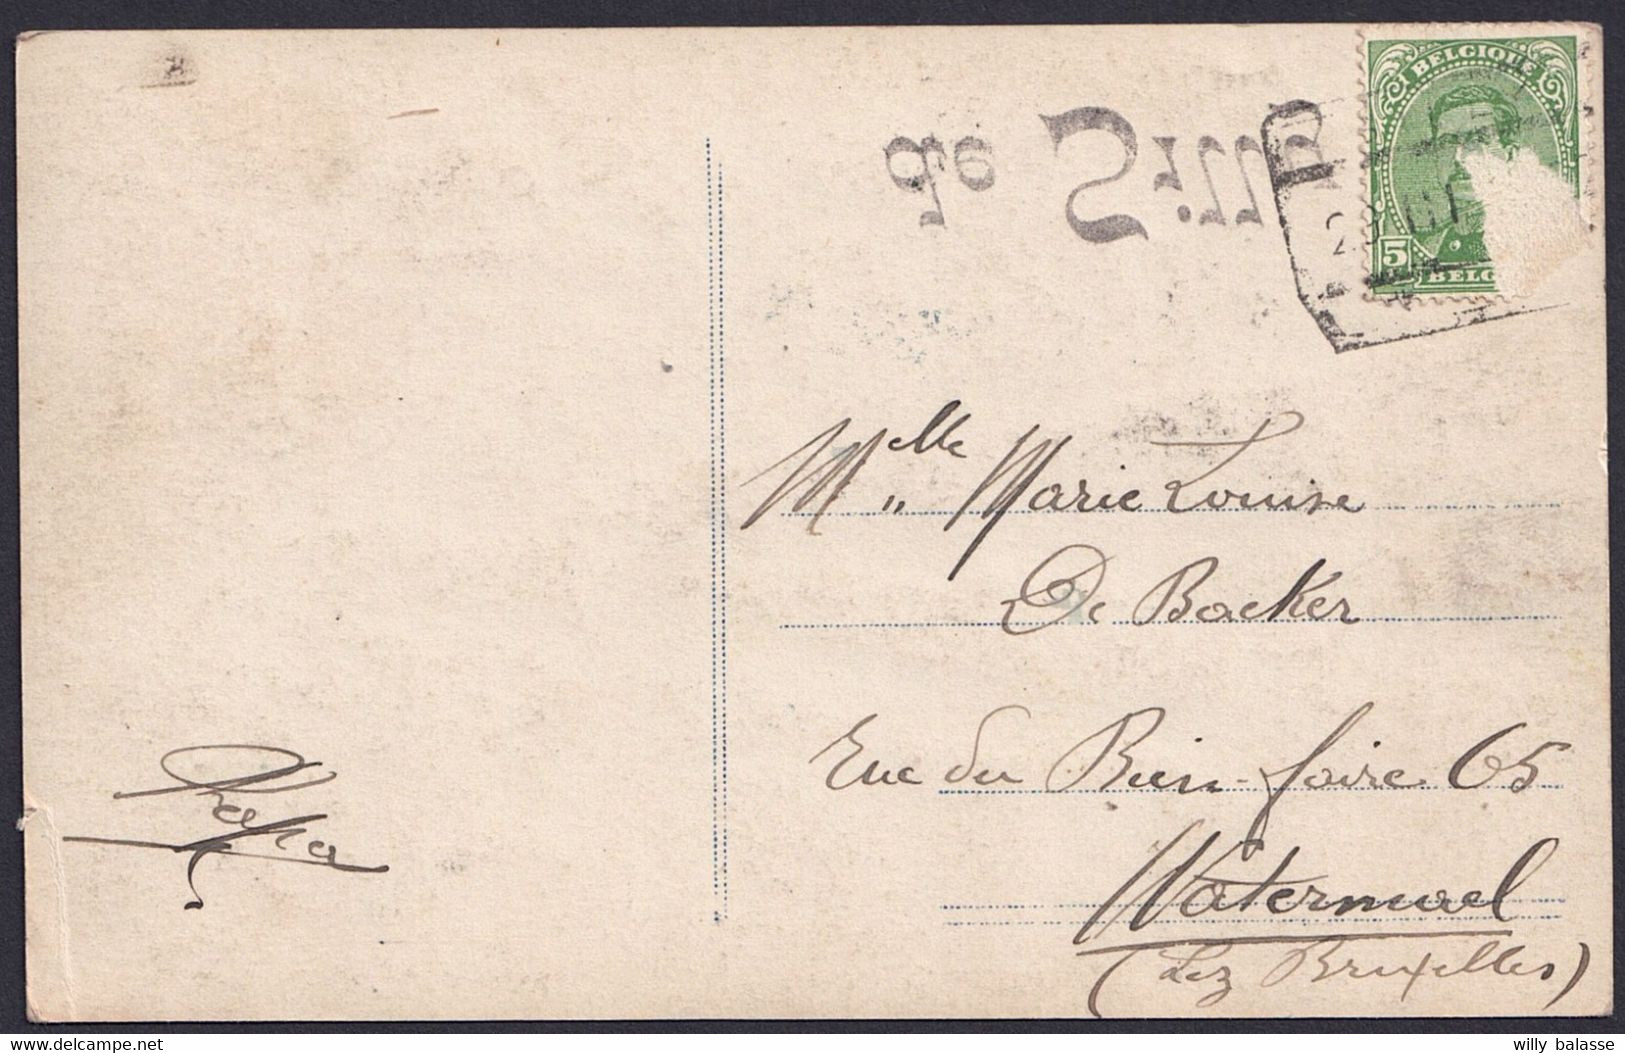 BELGIQUE
5
BELG
de S
Melle Marie Louise
De Backer
Rue du Bien-faire 65
Watermael
(Lez Bruxelles)
Papa
willy balasse